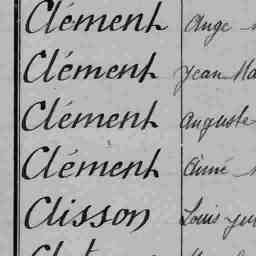 Clément Ange
Clément Jean
Clément Auguste
Clément Aimé
Clisson Louis